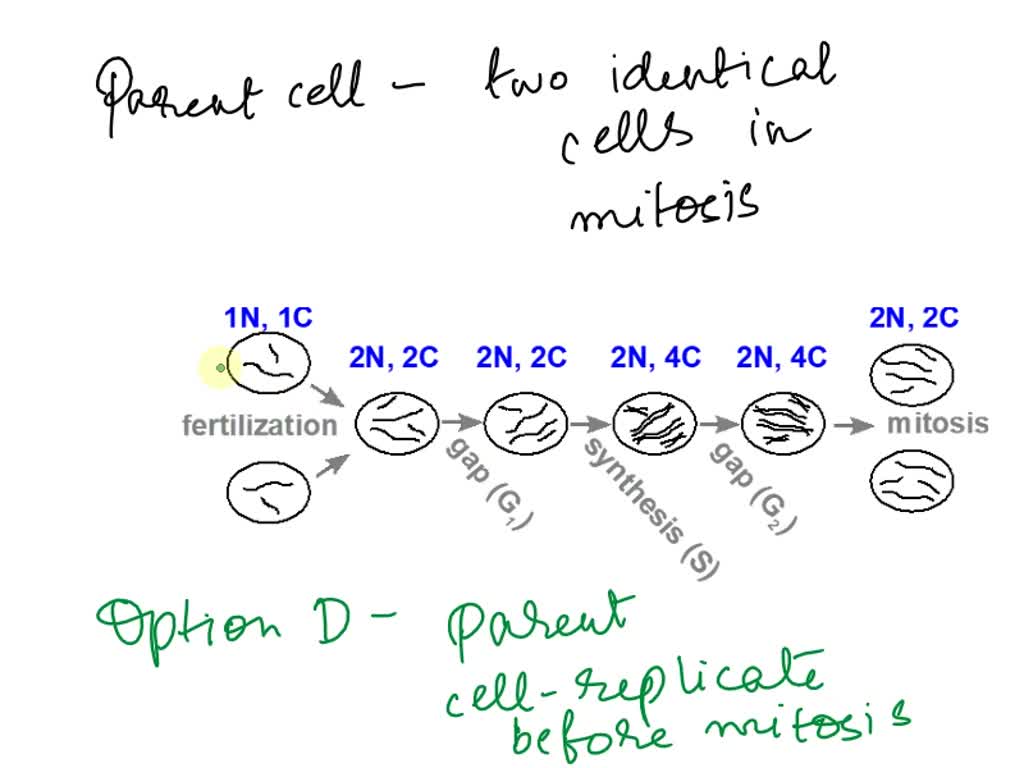 Parent cell - two identical
cells in
mitosis
1N, 1C
2N, 2C
2N, 2C
2N, 4C
2N, 4C
2N, 2C
fertilization
mitosis
gap (G₁)
synthesis (S)
gap (G₂)
Option D - parent
cell-replicate
before mitosis